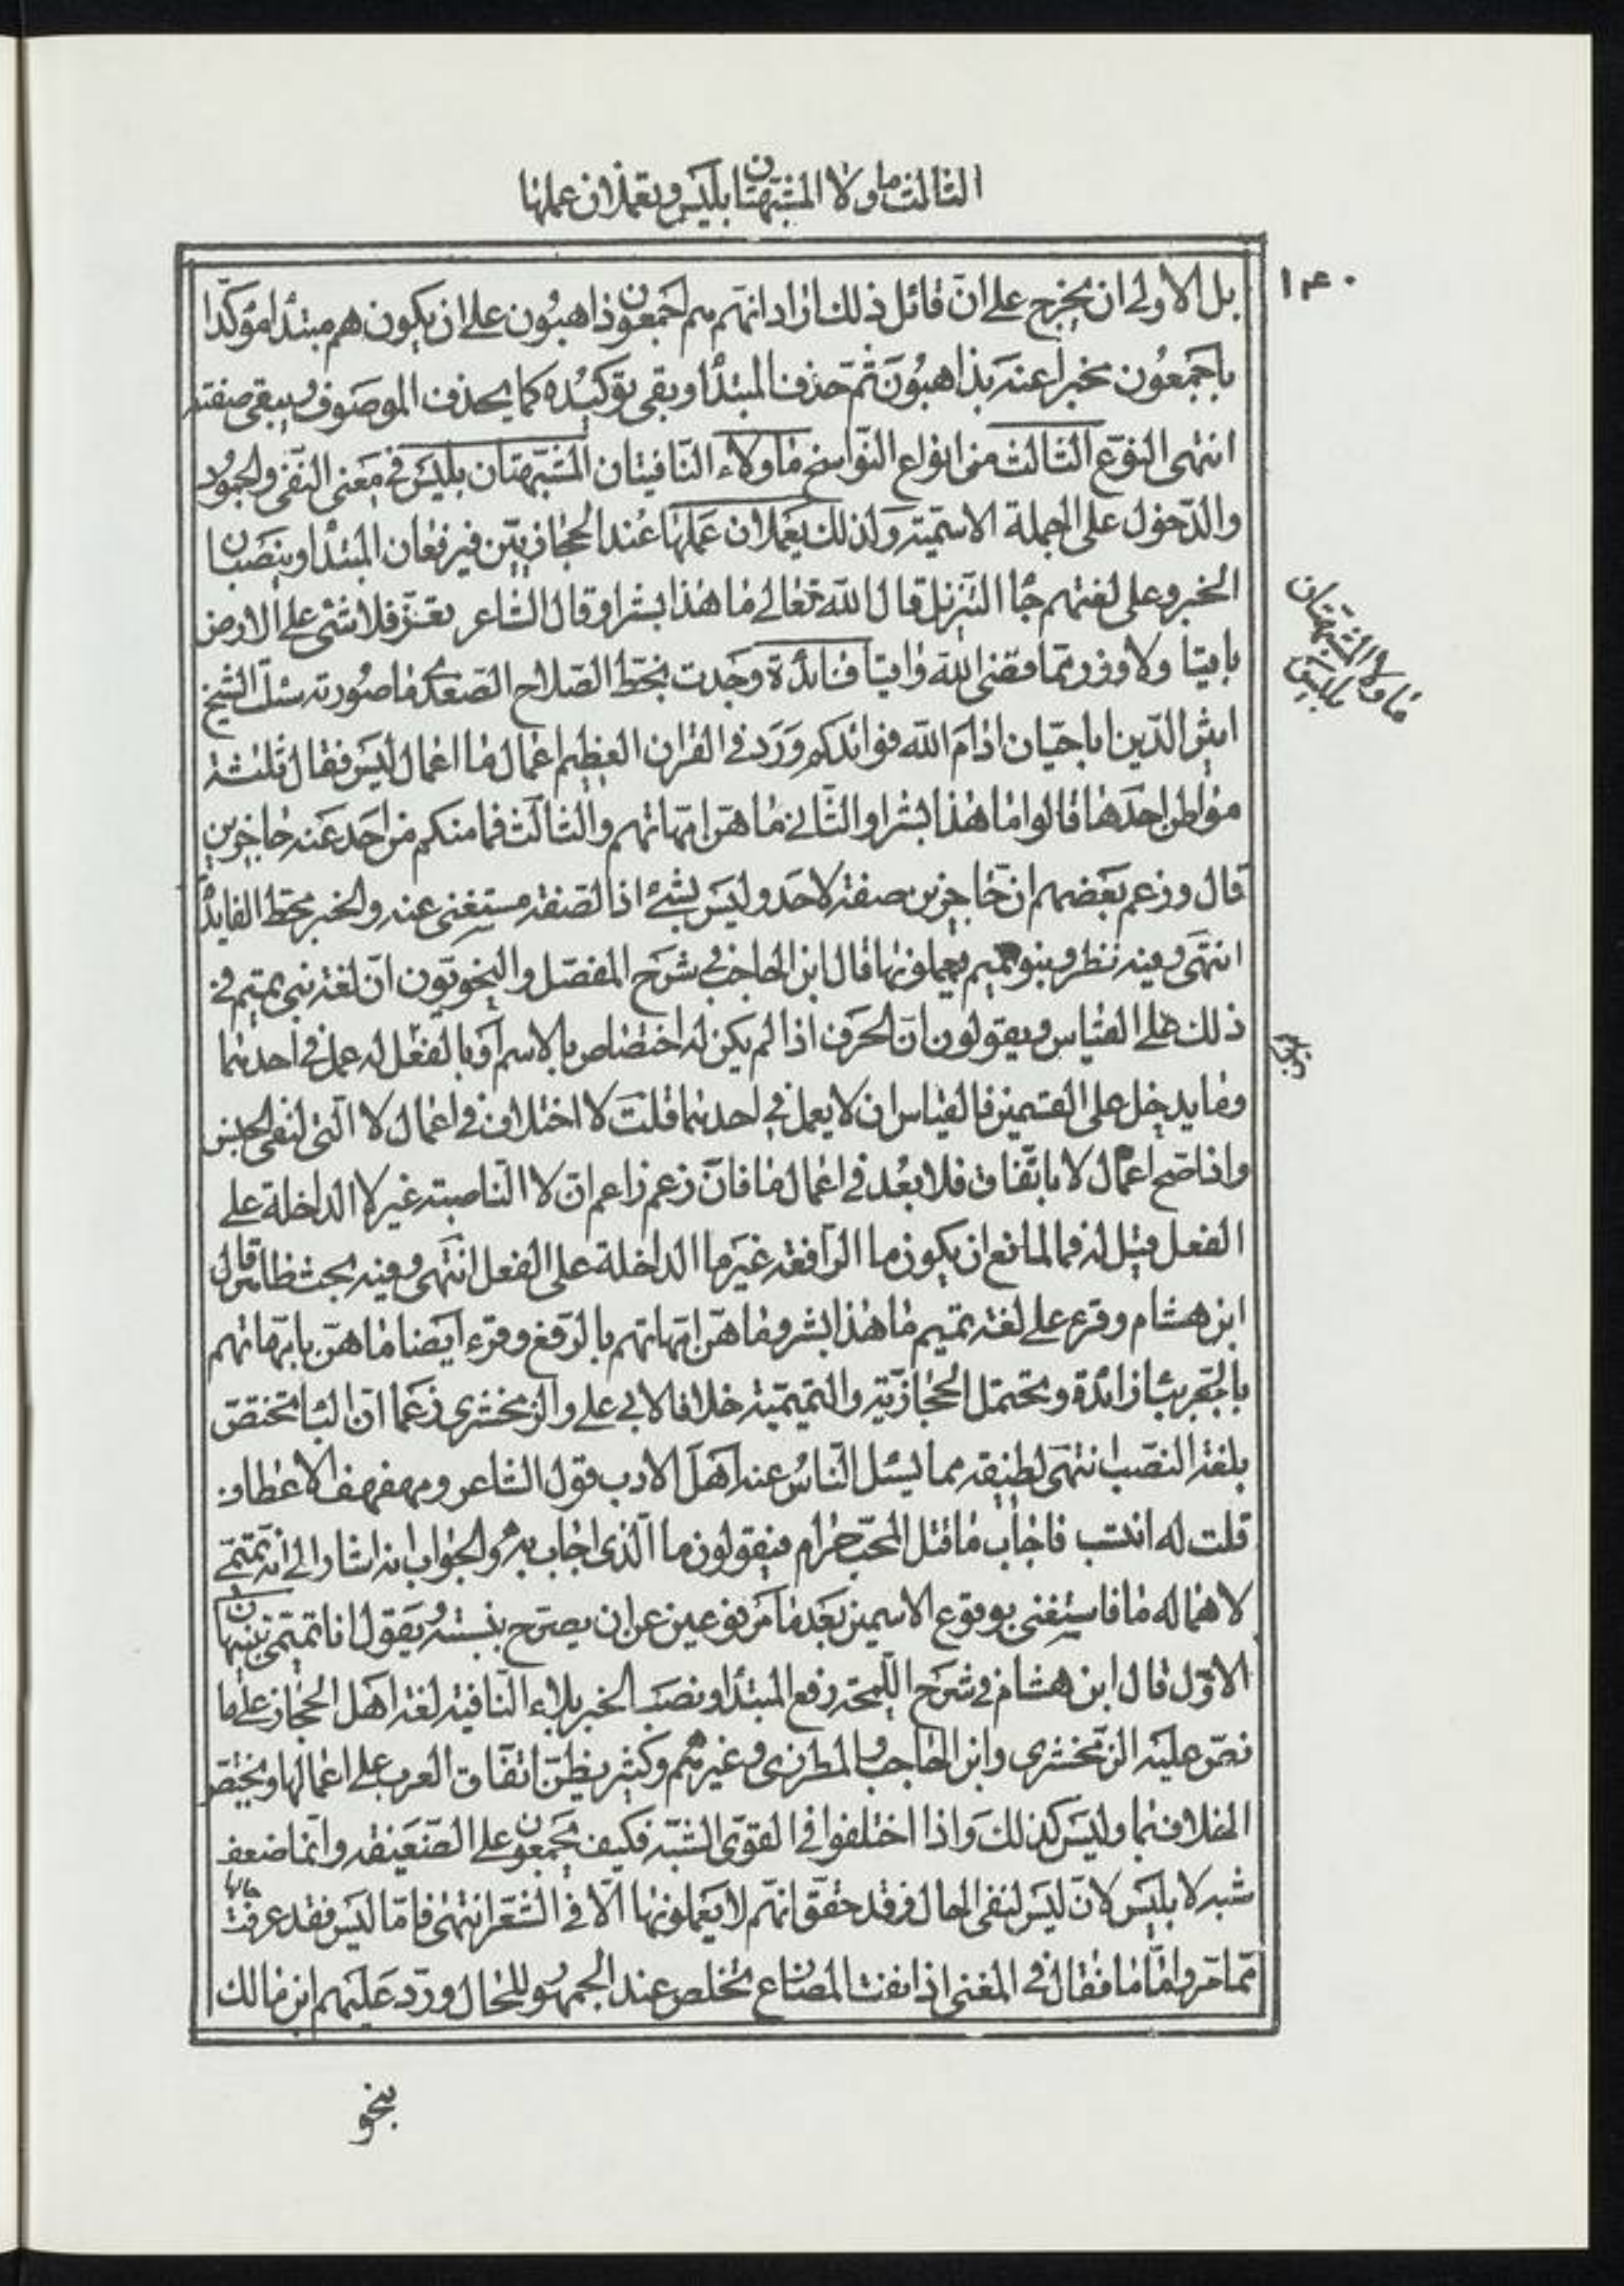 الثالث ما ولا المشبهتان بليس ويعملان عملها
١٤٠
بل الاولى ان يخرج على انّ قائل ذلك اراد انهم هم اجمعون ذاهبون على ان يكون هم مبتدأ مؤكّدا
باجمعون مخبرا عنه بذاهبون ثم حذف المبتدأ وبقى توكيده كما يحذف الموصوف ويبقى صفته
انتهى النوع الثالث من انواع النواسخ ما ولاء النافيتان المشبهتان بليس في معنى النفى والجحود
والدّخول على الجملة الاسمية ولذلك يعملان عملها عند الحجازيين فيرفعان المبتدأ وينصبان
الخبر وعلى لغتهم جاء التنزيل قال الله تعالى ما هذا بشرا وقال الشاعر تعزّ فلا شئ على الارض
باقيا ولا وزر مما قضى الله واقيا فائدة وجدت بخط الصلاح الصفدى ما صورته سئل الشيخ
اثير الدّين ابا حيّان ادام الله فوائدكم ورد في القران العظيم اعمال ما اعمال ليس فقال ثلثة
مواطن احدها قالوا ما هذا بشرا والثانى ما هنّ امّهاتهم والثالث فما منكم من احد عنه حاجزين
قال وزعم بعضهم ان حاجزين صفة لاحد وليس بشئ اذ الصفة مستغنى عنه والخبر محط الفايدة
انتهى وفيه نظر وبنو تميم يهملونها قال ابن الحاجب في شرح المفصل والنحويون انّ لغة بنى تميم في
ذلك على القياس ويقولون انّ الحرف اذا لم يكن له اختصاص بالاسم او بالفعل له عمل في احدهما
وما يدخل على القسمين فالقياس ان لا يعمل في احدهما قلت لا اختلاف في اعمال لا الّتى لنفى الجنس
واذا صح اعمال لا باتّفاق فلا بعد في اعمال ما فانّ زعم زاعم انّ لا الناصبة غير لا الداخلة على
الفعل قيل له فما المانع ان يكون ما الرّافعة غير ما الداخلة على الفعل انتهى وفيه بحث ظاهر قال
ابن هشام وقرء على لغة تميم ما هذا بشر وما هنّ امّهاتهم بالرّفع وقرء ايضا ما هنّ بامّهاتهم
بالجر بباء زائدة ويحتمل الحجازيّة والتميميّة خلافا لابى على والزمخشرى زعما انّ الباء تختصّ
بلغة النصب انتهى لطيفة مما يسئل الناس عند اهل الادب قول الشاعر ومهفهف الاعطاف
قلت له انتسب فاجاب ما قتل المحبّ حرام فيقولون ما الّذى اجاب به والجواب انه اشار الى انه تميمىّ
لاهماله ما فاستغنى بوقوع الاسمين بعد ما مرفوعين عن ان يصرّح بنسبته ويقول انا تميمى تنبيهان
الاوّل قال ابن هشام في شرح اللمحة رفع المبتدأ ونصب الخبر بلاء النافية لغة اهل الحجاز على ما
نصّ عليه الزمخشرى وابن الحاجب والمطرزى وغيرهم وكثير يظنّ اتفاق العرب على اعمالها ويختص
الخلاف بما وليس كذلك واذا اختلفوا في القوىّ الشبّه فكيف يجمعون على الضعيفه وانما ضعف
شبه لا بليس لانّ ليس لنفى الحال وقد حقّق انهم لا يعملونها الّا في الشعر انتهى فامّا ليس فقد عرفت حالها
ممّا مرّ وامّا ما فقال في المغنى اذا نفت المضارع تخلص عند الجمهور للحال وردّ عليهم ابن مالك
ما ولا المشبهتان
بليس
بنحو